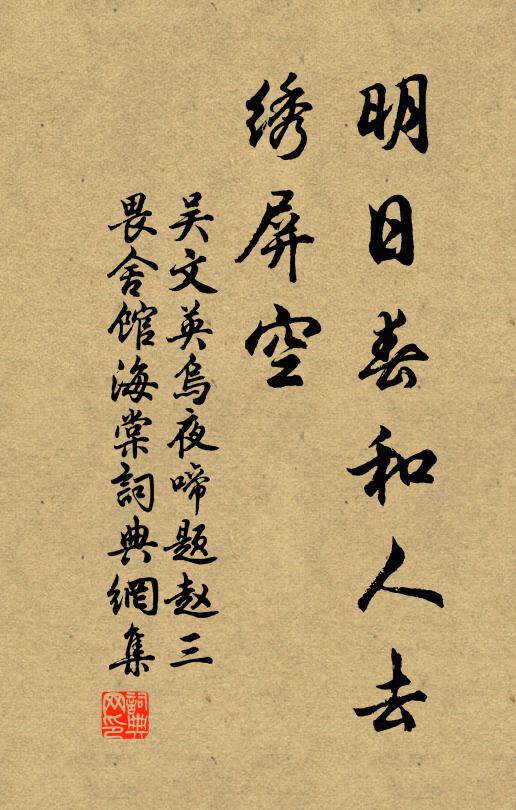 明日春和人去
绣屏空
吴文英乌夜啼题赵三
畏舍馆海棠詞典網集
詞典
网印